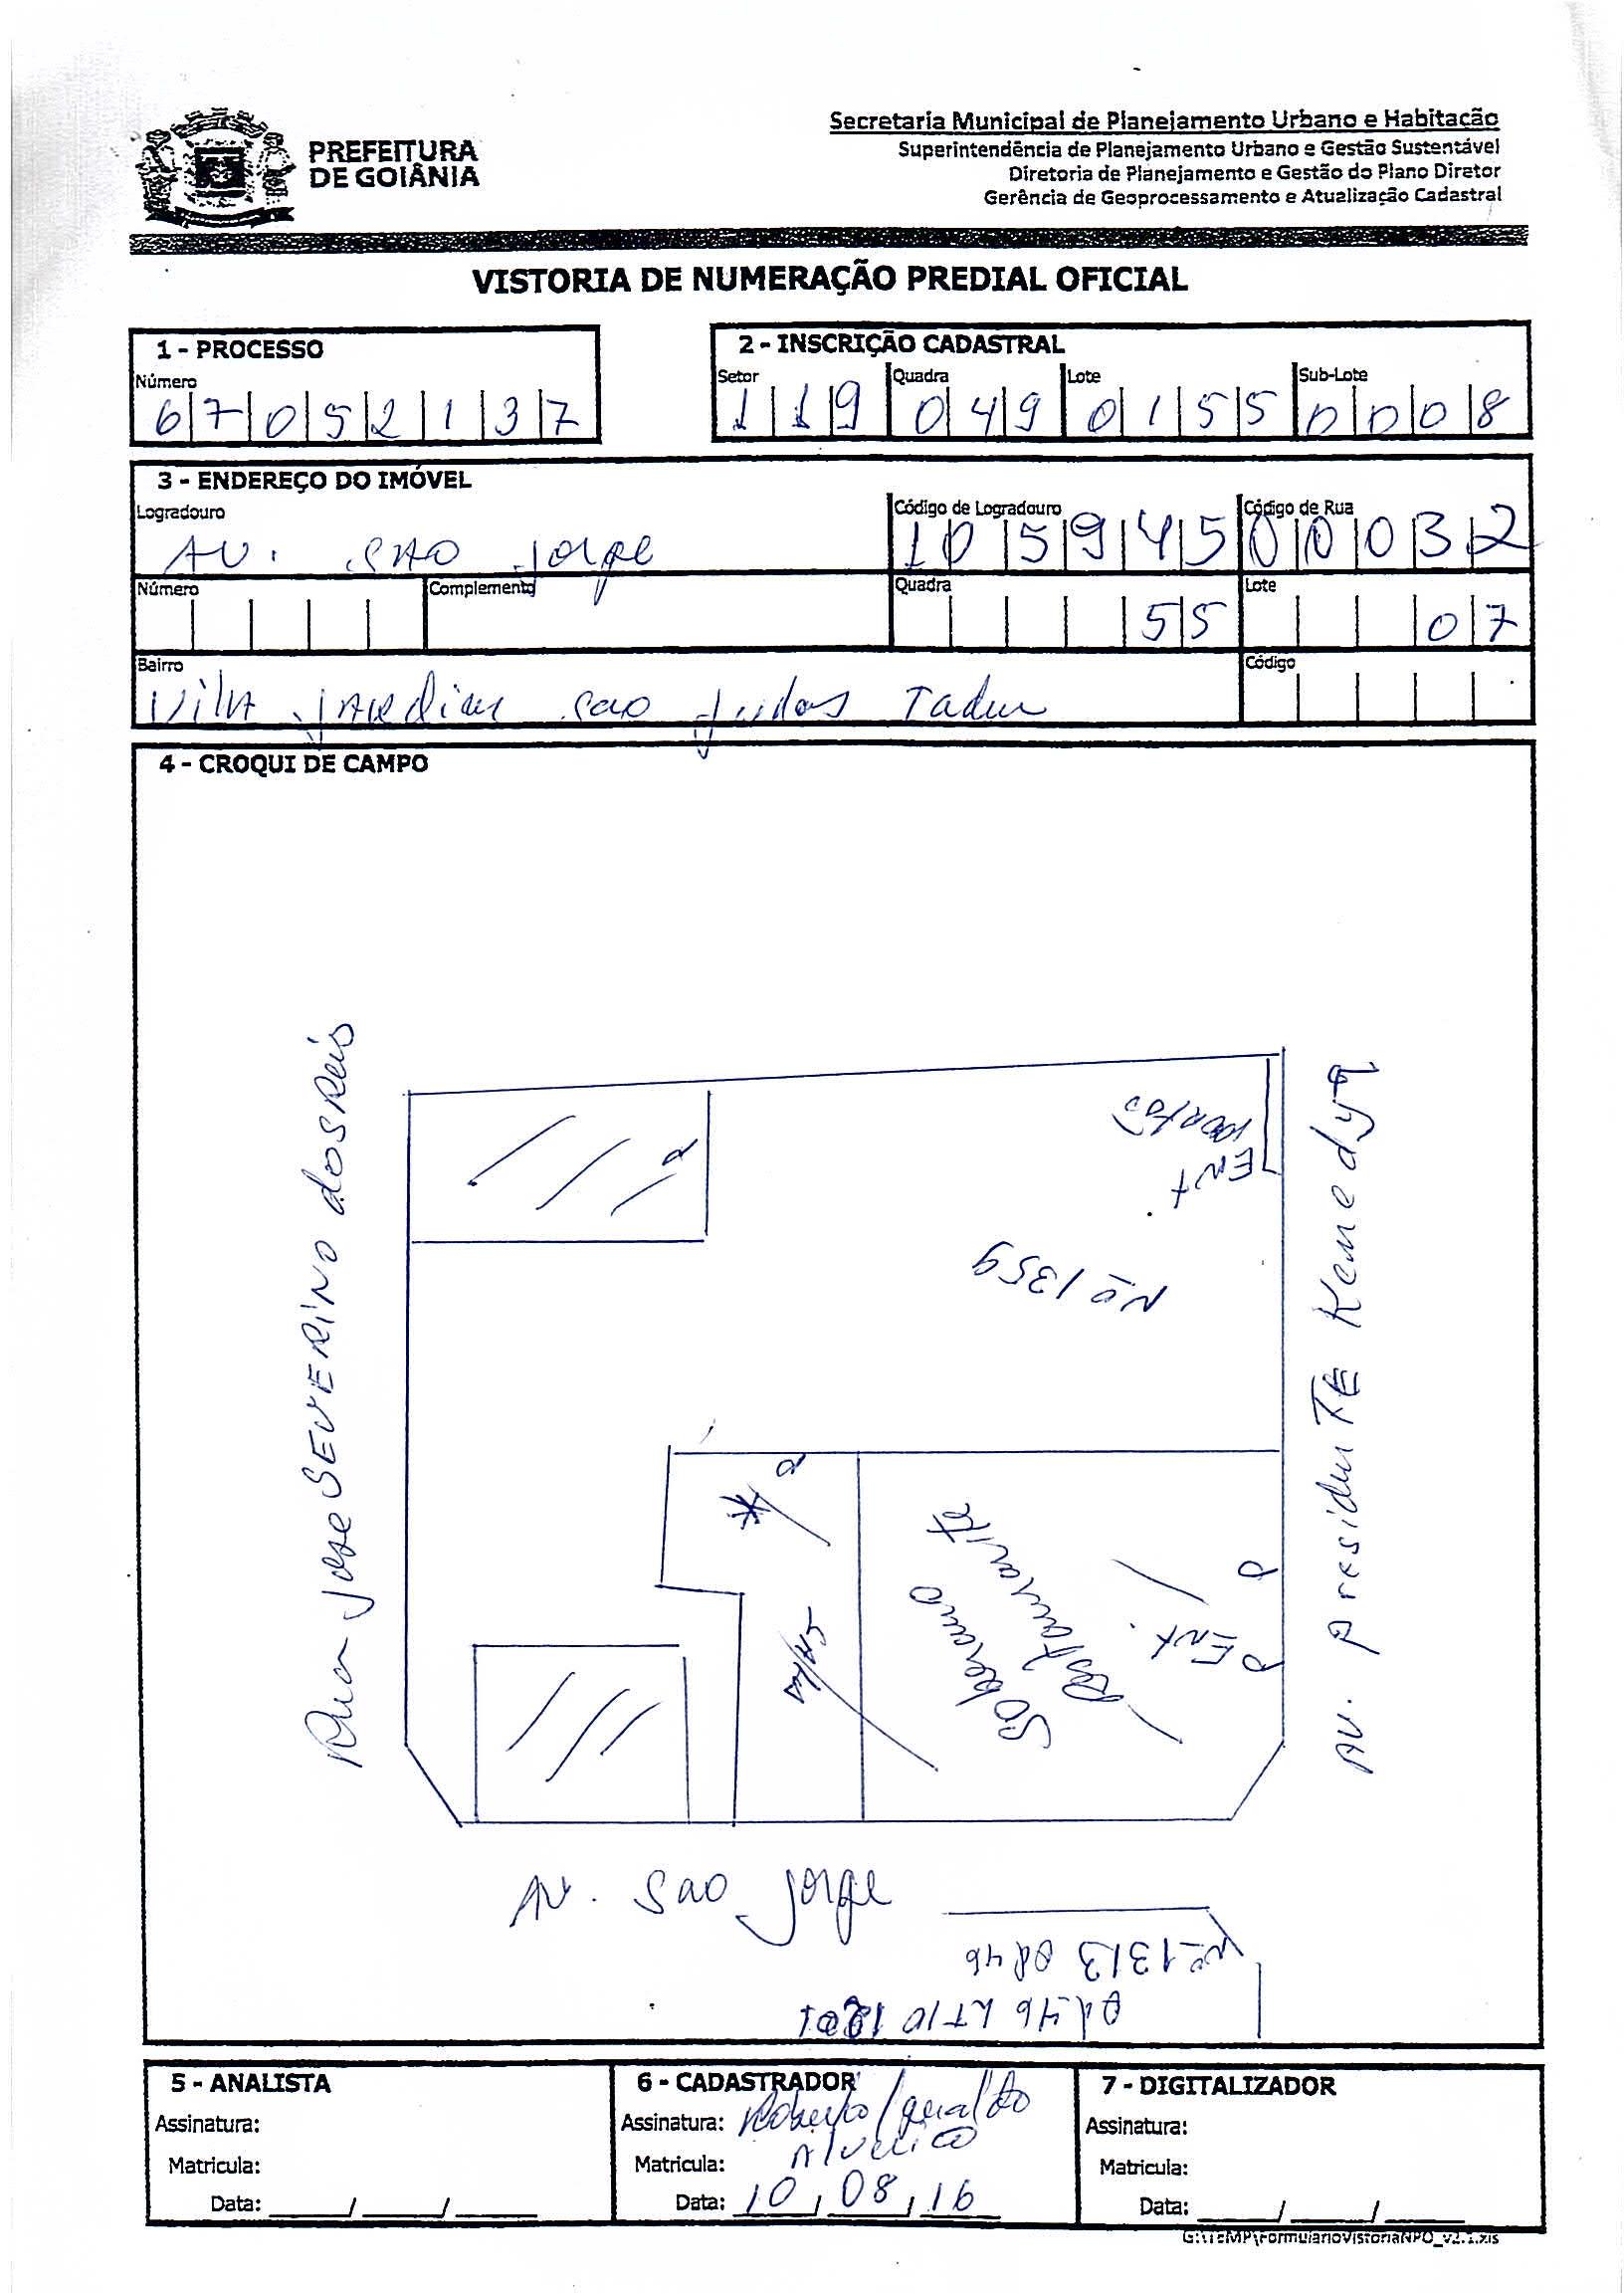 PREFEITURA
DE GOIÂNIA
Secretaria Municipal de Planejamento Urbano e Habitação
Superintendência de Planejamento Urbano e Gestão Sustentável
Diretoria de Planejamento e Gestão do Plano Diretor
Gerência de Geoprocessamento e Atualização Cadastral
VISTORIA DE NUMERAÇÃO PREDIAL OFICIAL
1 - PROCESSO
Número
67052137
2 - INSCRIÇÃO CADASTRAL
Setor Quadra Lote Sub-Lote
119 049 0155 0008
3 - ENDEREÇO DO IMÓVEL
Logradouro Código de Logradouro Código de Rua
AV. SAO Jorge 105945 00032
Número Complemento Quadra Lote
55 07
Bairro Código
Vila Jardim sao Judas Tadeu
4 - CROQUI DE CAMPO
Rua Jose SEVERINO dos Reis
ENT
PORTÃO
Nº 1359
AV. PresidenTE Kenedy
Soberano
Restaurante
ENT.
AV. Sao Jorge
Nº 1313 Qd 46
Qd 46 LT 10
5 - ANALISTA
Assinatura:
Matricula:
Data: ____/____/____
6 - CADASTRADOR
Assinatura: Roberto / geraldo
Matricula:
Data: 10/08/16
7 - DIGITALIZADOR
Assinatura:
Matricula:
Data: ____/____/____
G:\TEMP\FormularioVistoriaNPO_v2.1.xls